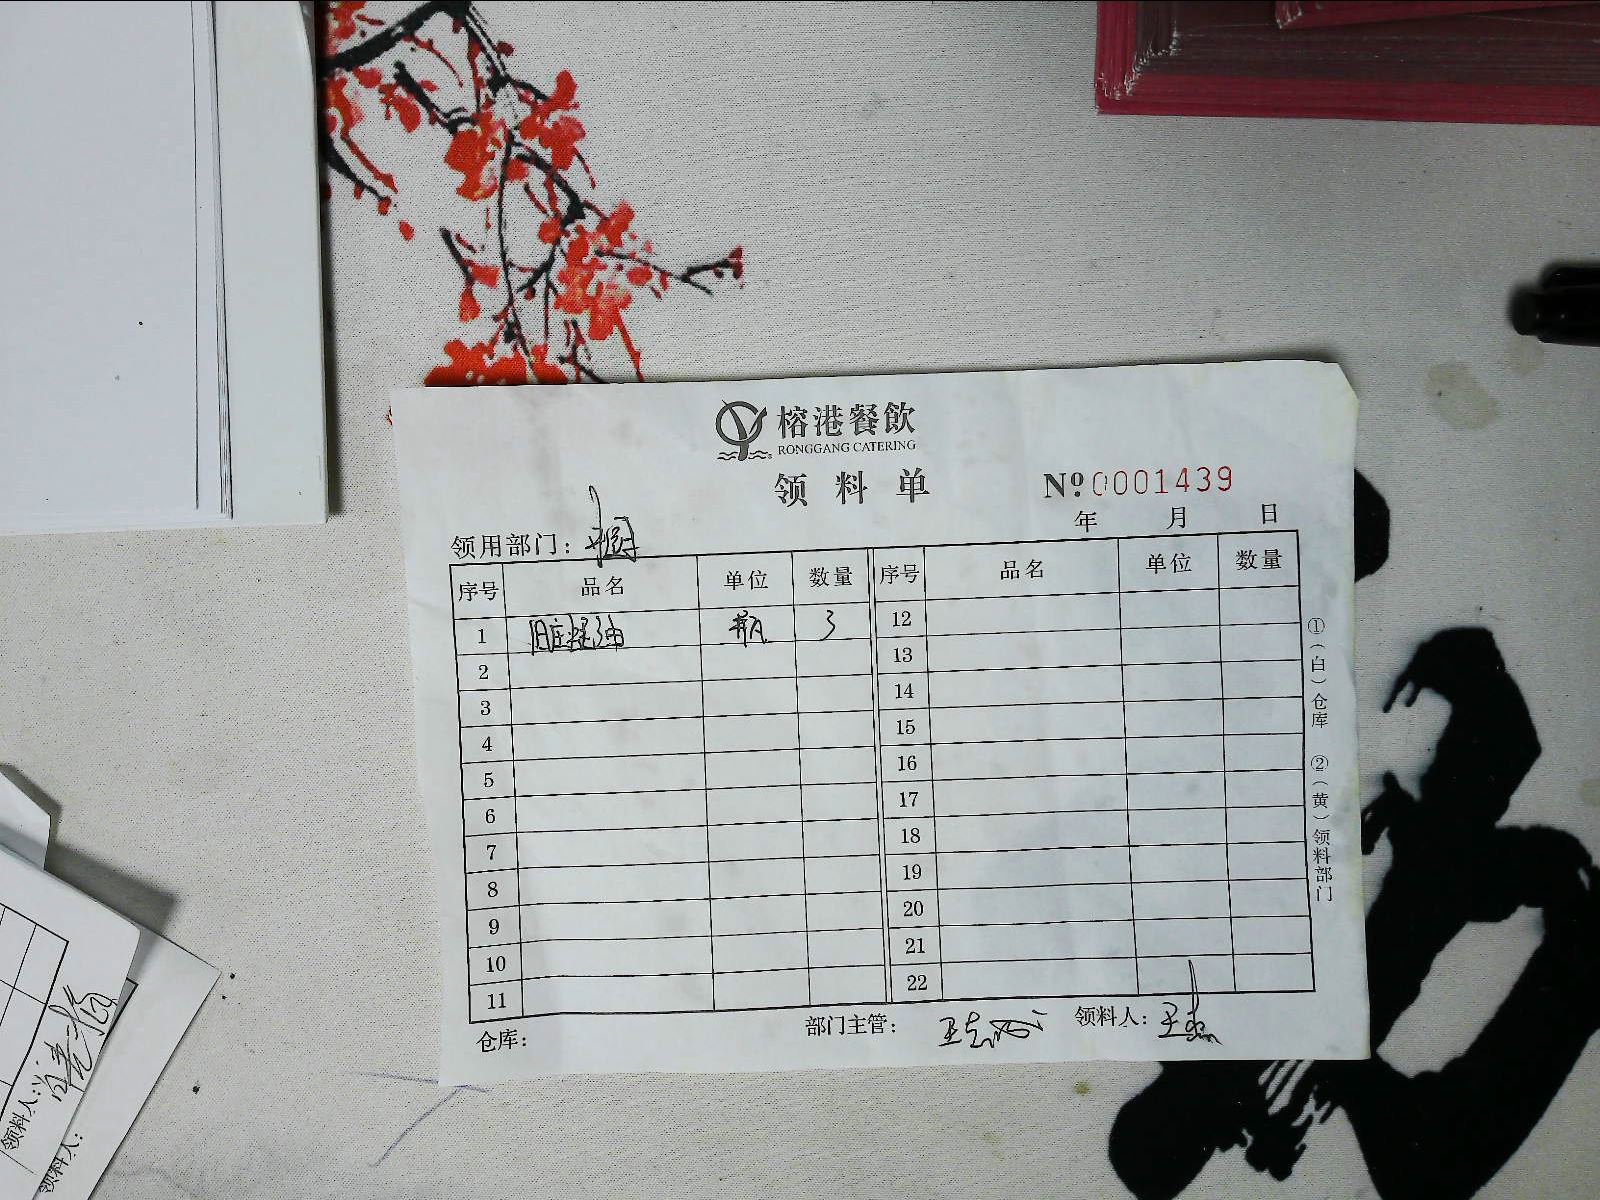 榕港餐飲
RONGGANG CATERING
领料单
№ 0001439
年 月 日
领用部门：
序号 品名 单位 数量 序号 品名 单位 数量
1 旧庄蚝油 瓶 3 12
2 13
3 14
4 15
5 16
6 17
7 18
8 19
9 20
10 21
11 22
仓库： 部门主管： 领料人：
①（白）仓库 ②（黄）领料部门
领料人：
领料人：